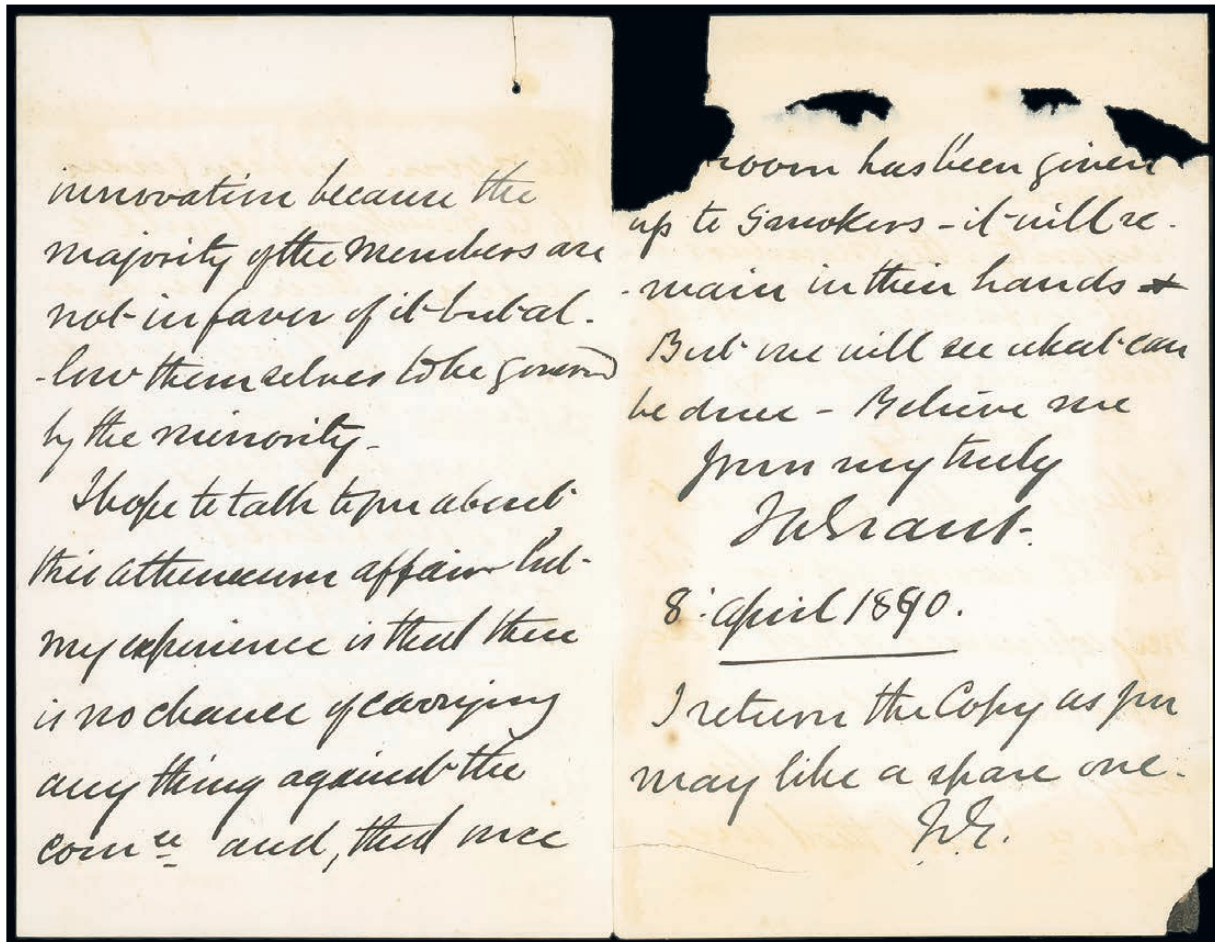 innovation because the
majority of the members are
not in favor of it but al-
-low themselves to be governed
by the minority -
I hope to talk to you about
this athenaeum affair but
my experience is that there
is no chance of carrying
any thing against the
comee and, that once
room has been given
up to Smokers - it will re-
-main in their hands
But we will see what can
be done - Believe me
yours very truly
Grant.
8: april 1890.
I return the Copy as you
may like a spare one.